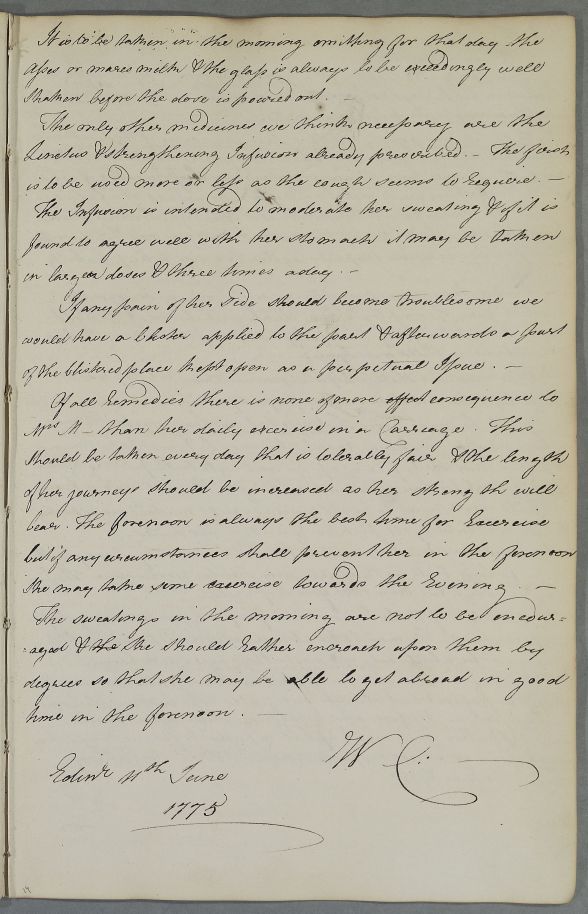 It is to be taken in the morning omitting for that day the
Asses or mares milk & the glass is always to be exceedingly well
shaken before the dose is poured out. –
The only other medicines we think necessary are the
Linctus & strengthening Infusion already prescribed. – The first
is to be used more or less as the cough seems to require. –
The Infusion is intended to moderate her sweating & if it is
found to agree well with her stomach it may be taken
in larger doses & three times a day. –
If any pain of her side should become troublesome we
would have a blister applied to the part & afterwards a part
of the blistered place kept open as a perpetual Issue. –
Of all Remedies there is none of more effect consequence to
Mrs M – than her daily exercise in a Carriage. This
should be taken every day that is tolerably fair & the length
of her journeys should be increased as her strength will
bear. The forenoon is always the best time for Exercise
but if any circumstances shall prevent her in the forenoon
she may take some exercise towards the Evening. –
The sweatings in the morning are not to be encour=
=aged & the she should rather encroach upon them by
degrees so that she may be able to get abroad in good
time in the forenoon. –
W C:
Edinr 11th June
1775